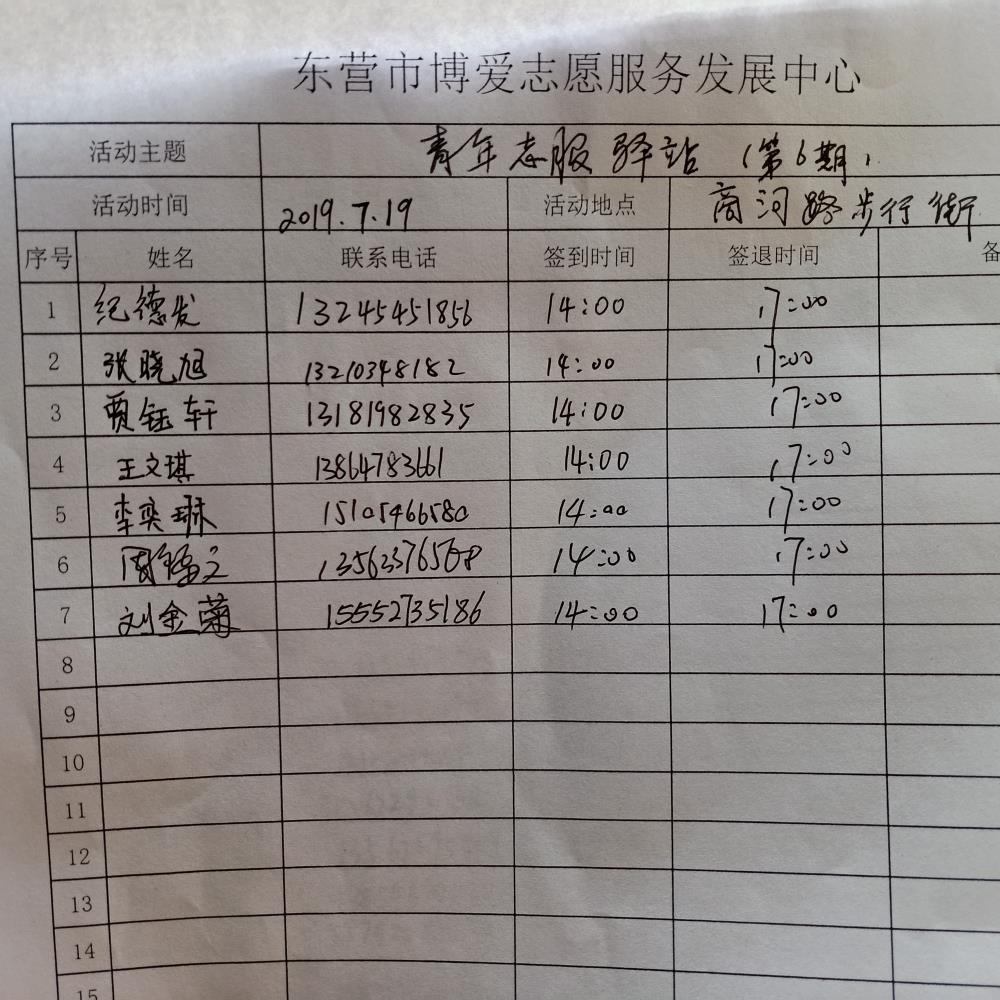 东营市博爱志愿服务发展中心
活动主题 青年志服驿站（第6期）
活动时间 2019.7.19 活动地点 商河路步行街
序号 姓名 联系电话 签到时间 签退时间 备
1 纪德发 13245451856 14:00 17:00
2 张晓旭 13210348182 14:00 17:00
3 贾钰轩 13181982835 14:00 17:00
4 王文琪 13864783661 14:00 17:00
5 李奕琳 15105466580 14:00 17:00
6 13563376568 14:00 17:00
7 刘金菊 15552735186 14:00 17:00
8
9
10
11
12
13
14
15